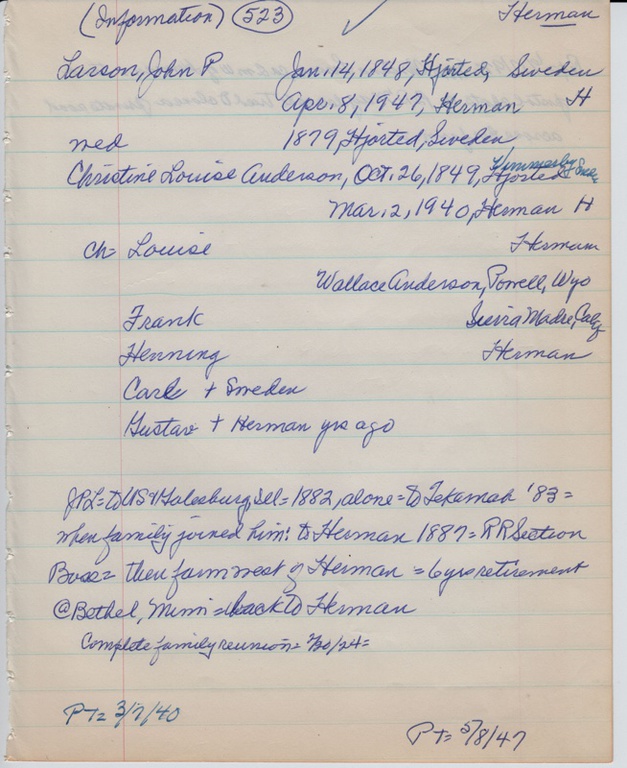 (Information) 523 ✓ Herman
Larson, John P. Jan. 14, 1848, Hjorted, Sweden
Apr. 8, 1947, Herman H
med 1879, Hjorted, Sweden
Christine Louise Anderson, Oct. 26, 1849, Hjorted
Mar. 2, 1940, Herman H
ch= Louise Herman
Wallace Anderson, Powell, Wyo
Frank Sierra Madre, Calif
Henning Herman
Carl + Sweden
Gustav + Herman yrs ago
JPL= to US & Galesburg, Ill= 1882, alone= to Tekamah '83=
when family joined him: to Herman 1887= RR Section
Boss= then farm west of Herman = 6 yrs retirement
@ Bethel, = back to Herman
Complete family reunion= /20/24=
PT= 3/7/40
PT= 5/8/47